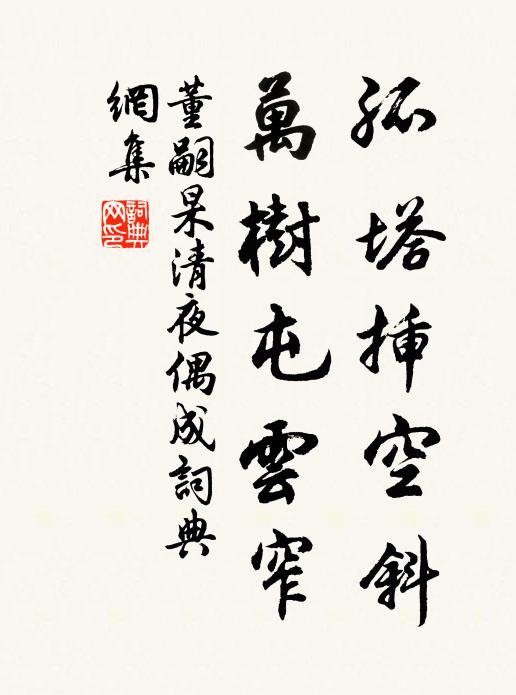 孤塔挿空斜
萬樹屯雲窄
董嗣杲清夜偶成詞典
網集
詞典網印